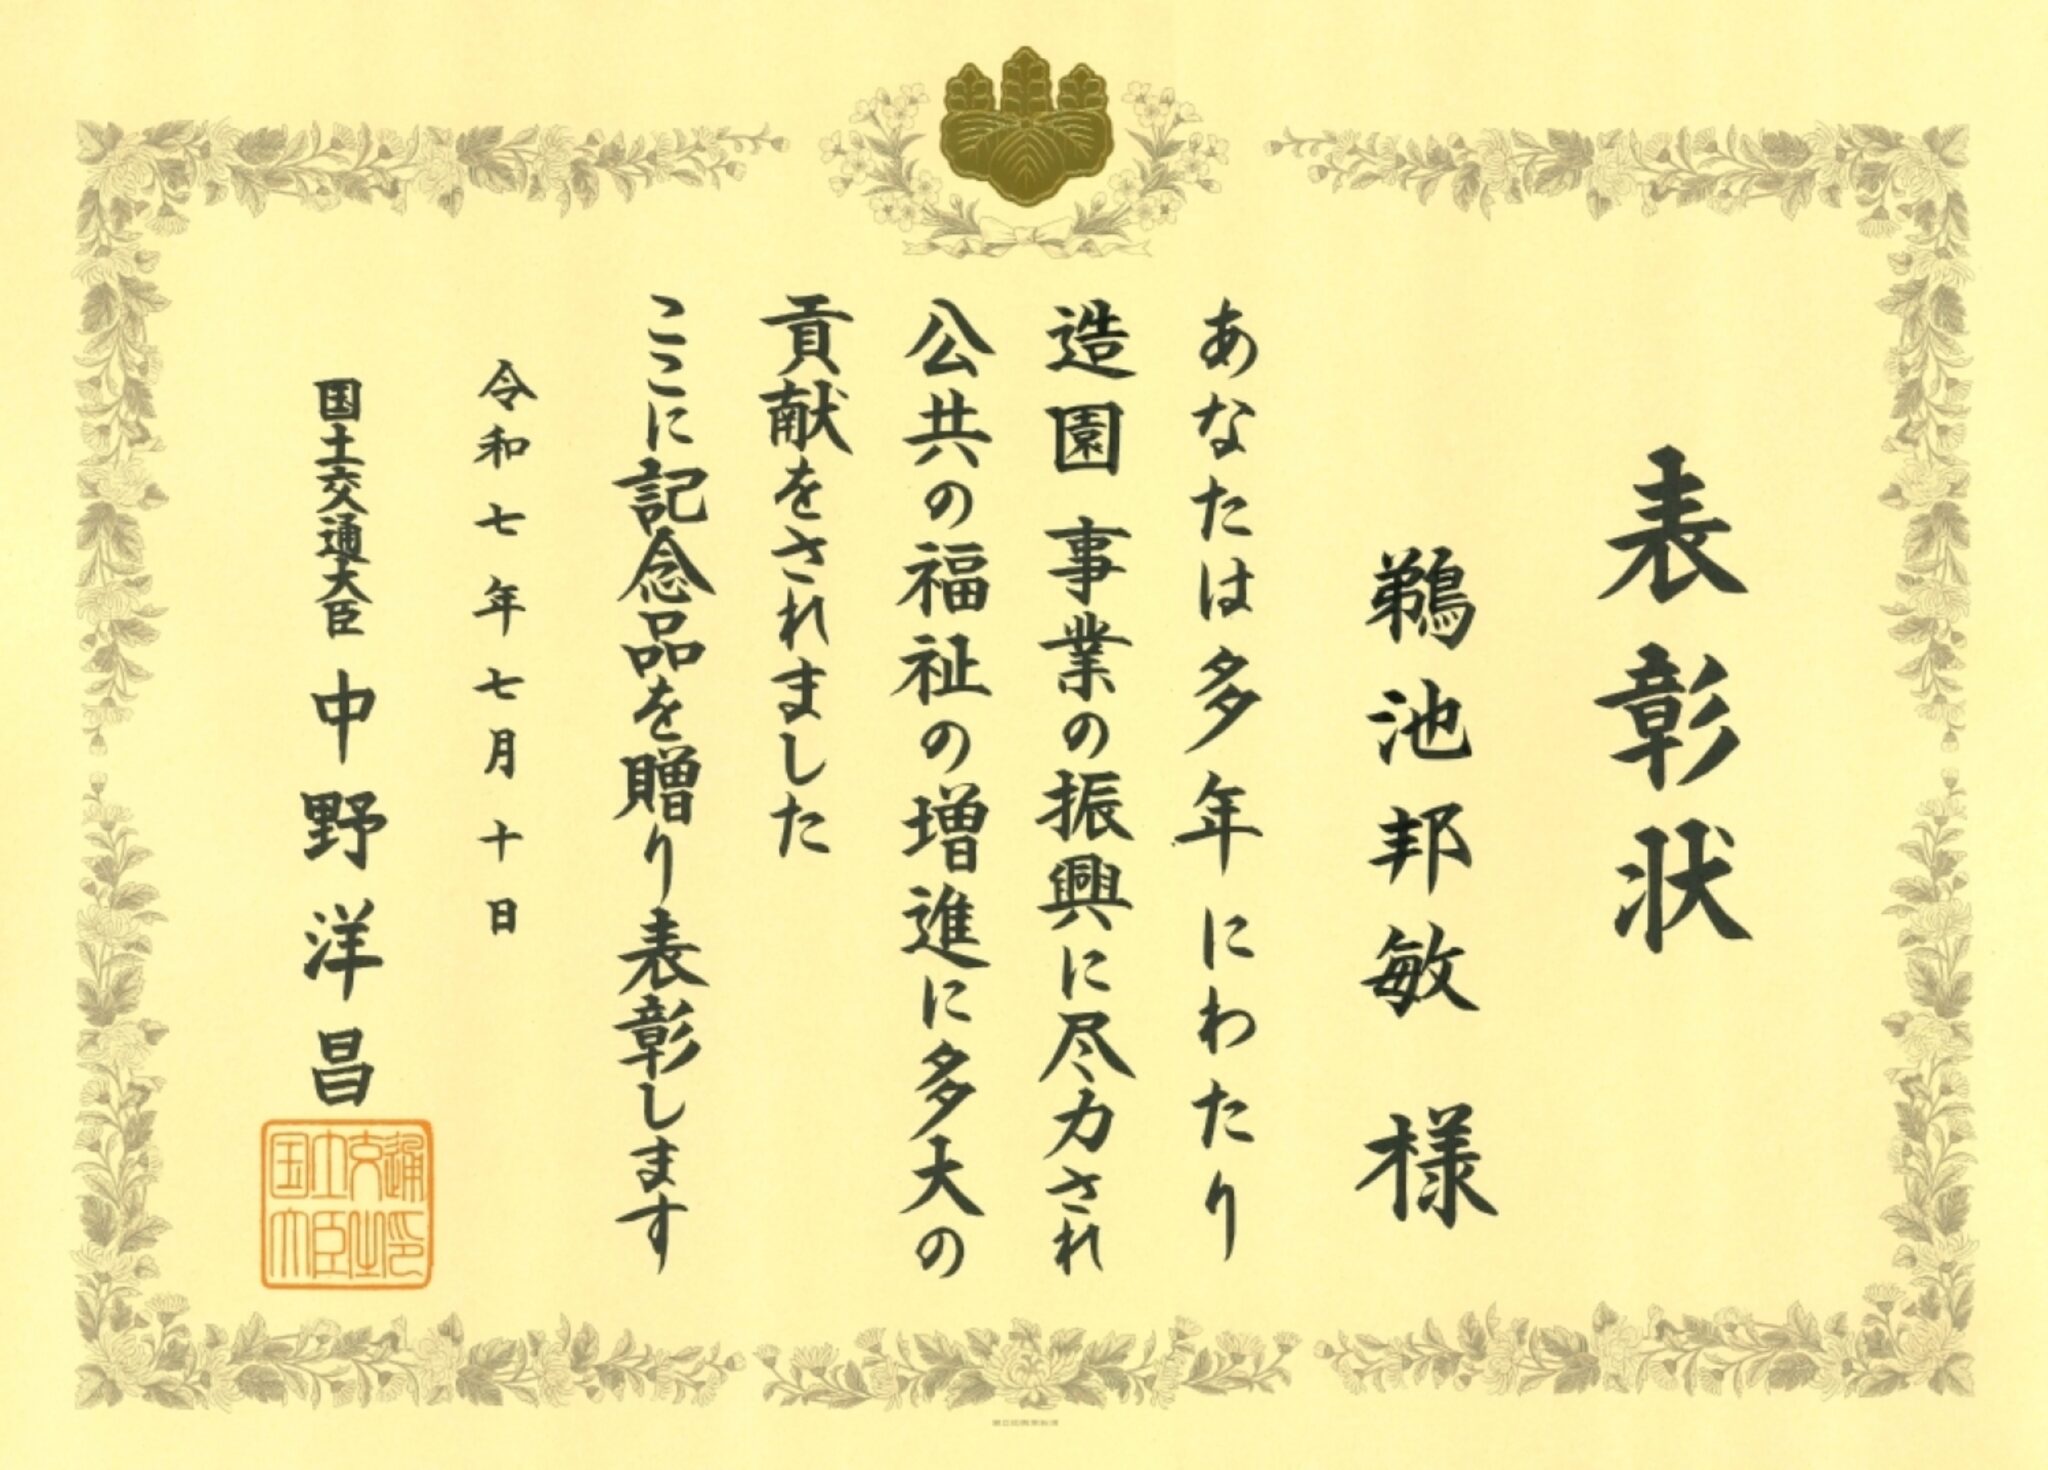 表彰状
鵜池邦敏 様
あなたは多年にわたり
造園事業の振興に尽力され
公共の福祉の増進に多大の
貢献をされました
ここに記念品を贈り表彰します
令和七年七月十日
国土交通大臣 中野洋昌
国土交通大臣之印